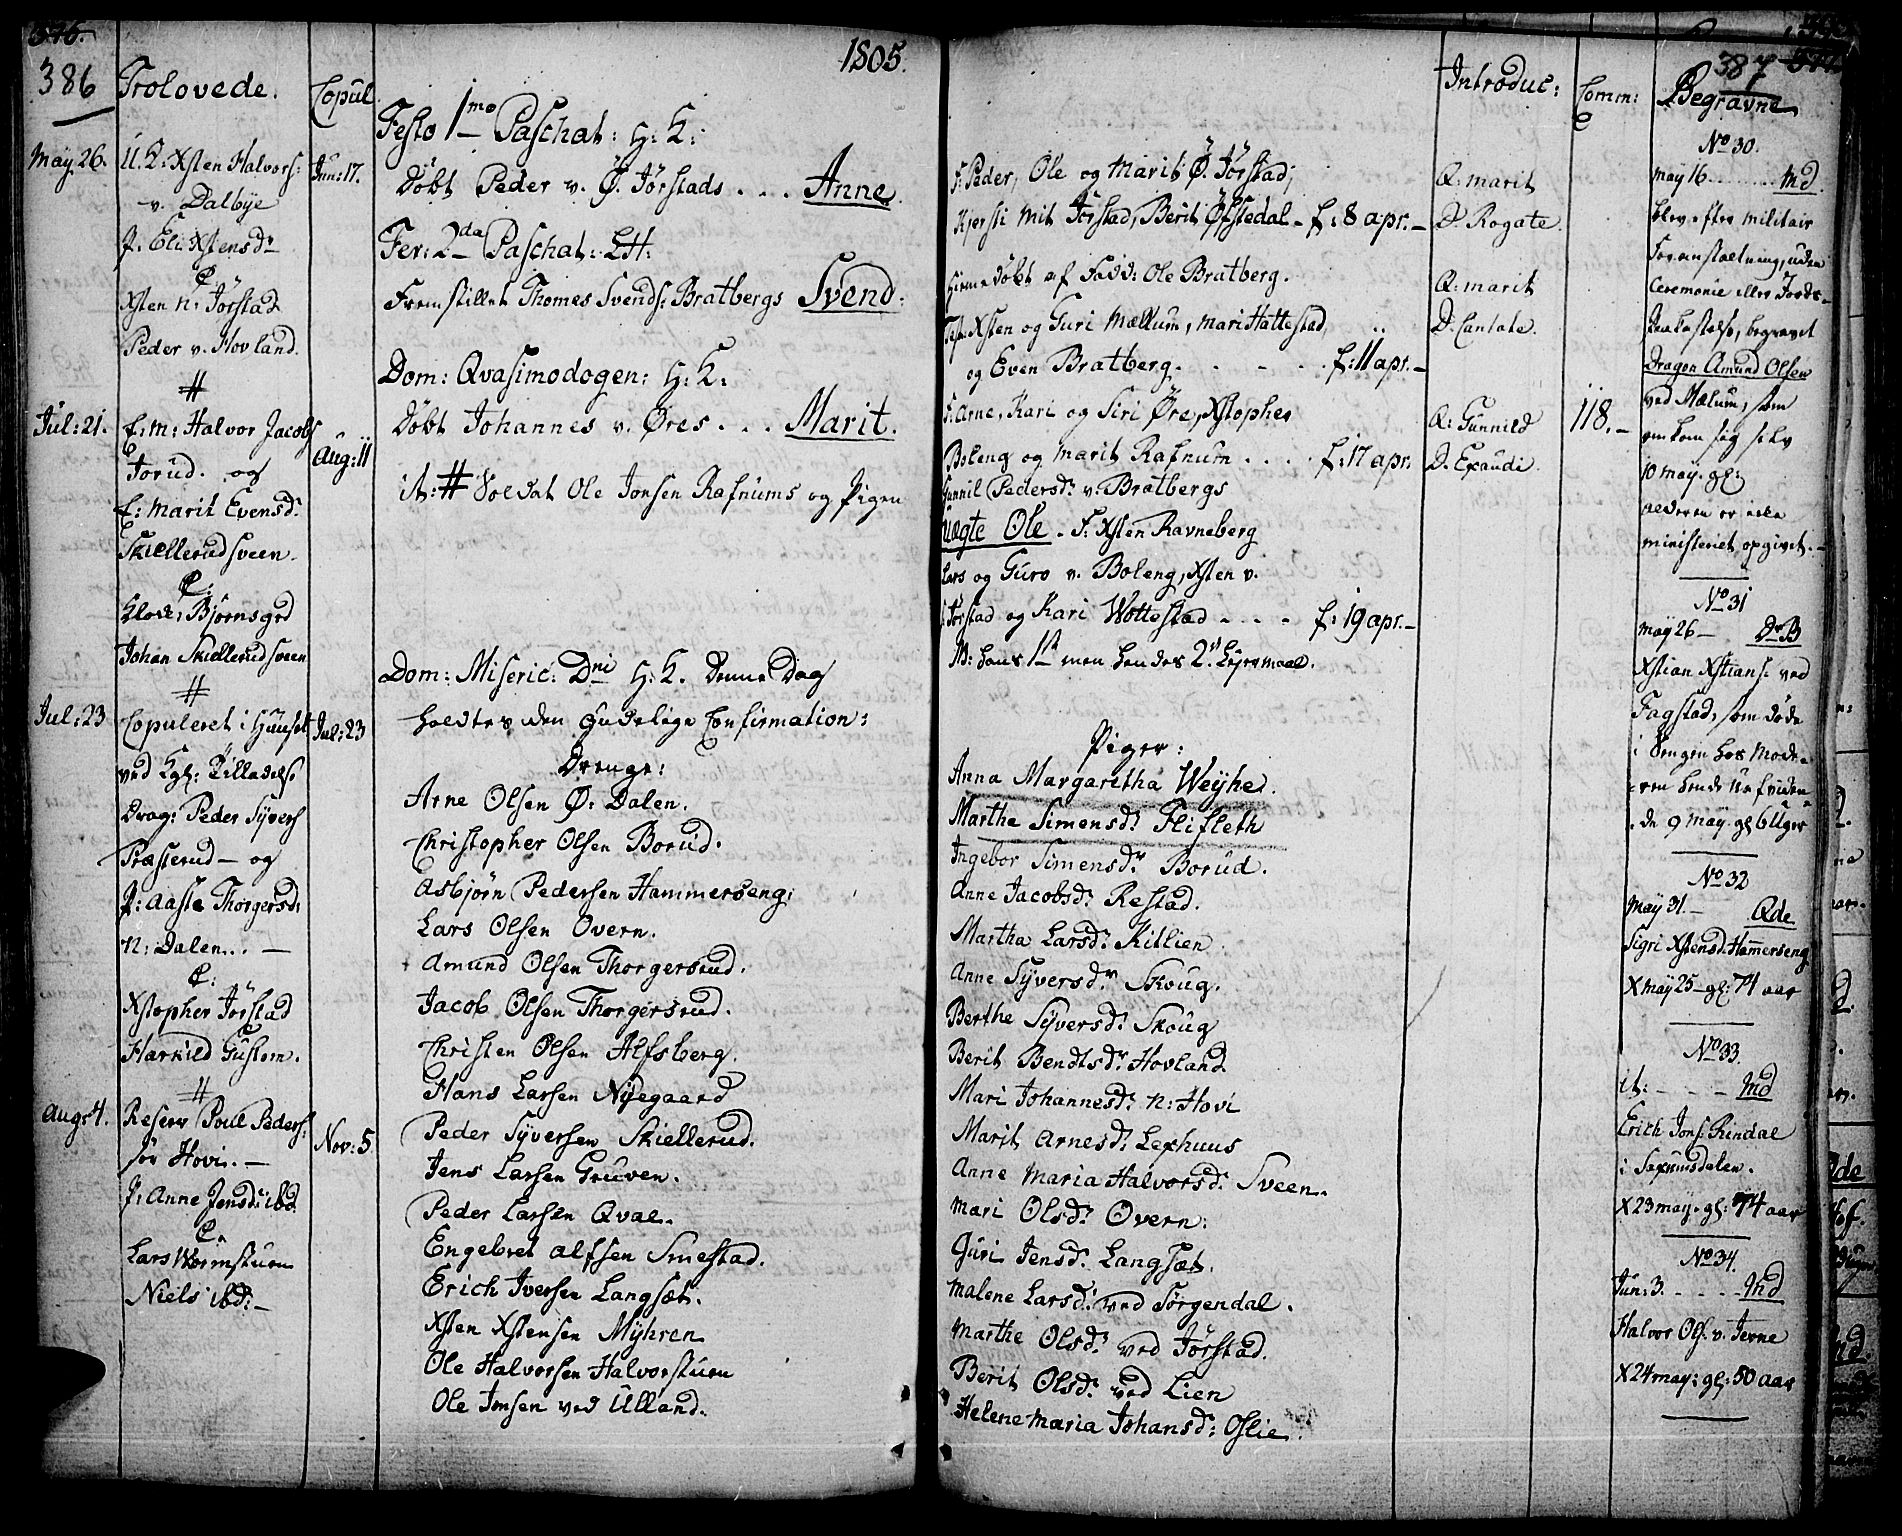 386
Trolovede.
Copul.
1805.
May 26.
U. K: Xsten Halvors:
v. Dalbye
P. Eli Xstensdr
C
Xsten n: Jörstad
Peder v. Hovland.
#
Jun: 17.
Jul: 21.
E: m: Halvor Jacobs
Torud. og
E: Marit Evensdr.
Skiellerudsveen.
C:
Klok: Björnsgrd
Johan Skiellerudsveen
#
Aug: 11
Jul: 23
Copuleret i Huuset
ved Kgl: Tilladelse
Drag: Peder Syvers
Præsterud — og
P: Aaste Thorgersd:
n: Dalen... —
C:
Xstopher Jörstad
Harkild Gustom.
#
Jul: 23
Aug: 4.
Reserv Poul Peders:
sör Hovi. —
P: Anne Jensd: ibd
C.
Lars Wormstuen
Niels ibd: —
Nov: 5
Festo 1mo Paschat: H: K:
Döbt Peder v. Ö. Jörstads . . . Anne.
Fer: 2da Paschat: LH:
Fremstillet Thomes Svends: Bratbergs Svend:
Dom: Qvasimodogen: H: K:
Döbt Johannes v. Öres . . . Marit.
it: # Soldat Ole Jonsen Rafnums og Pigen
Dom: Miseric: Dni H: K. Denne Dag
holdtes den Gudelige Confirmation:
Drenge:
Arne Olsen Ö: Dalen.
Christopher Olsen Borud.
Asbjörn Pedersen Hammerseng:
Lars Olsen Overn.
Amund Olsen Thorgersrud.
Jacob Olsen Thorgersrud.
Christen Olsen Alfsberg.
Hans Larsen Nygaard
Peder Syversen Skiellerud.
Jens Larsen Gruven.
Peder Larsen Qvale.
Engebret Alfsen Smestad.
Erich Iversen Langsæt.
Xsten Xstensen Myhren
Ole Halvorsen Halvorstuen
Ole Jonsen ved Ulland.
F: Peder, Ole og Marit Ö. Jörstad,
Kjersti Mit Jörstad, Berit Öfstedal — f: 8 apr. —
Hiemedöbt af Fadd: Ole Bratberg.
Test: Xsten og Guri Mællum, Mari Hattestad,
og Even Bratberg. . . . . f: 11 apr. —
F: Arne, Kari og Siri Öre, Xstopher
Boleng og Marit Rafnum . . . . f: 17 apr.
Gunnil Pedersd: v. Bratbergs
Uægte Ole . F: Xsten Ravneberg
Lars og Guro v. Boleng, Xsten v.
Jörstad og Kari Wottestad . . . . f: 19 apr. —
NB: hans 1st men hendes 2d. Leyermaal.
Piger:
Anna Margaretha Weyhe.
Marthe Simensdr. Flifleth
Ingebor Simensdr Borud.
Anne Jacobsdr. Restad.
Martha Larsdr. Killien
Anne Syversdr Skoug.
Berthe Syversdr. Skoug
Berit Bendtsdr. Hovland
Mari Johannesdr. n: Hovi
Marit Arnesdr. Lexhuus
Anne Maria Halvorsdr. Sveen.
Mari Olsdr. Overn.
Guri Jensdr. Langsæt.
Malene Larsdr. ved Sörgendal.
Marthe Olsdr. ved Jörstad.
Berit Olsdr. ved Lien
Helene Maria Johansd: Oslie.
Introduc:
Q: Marit
D: Rogate.
Q: Marit
D: Cantate.
Q: Gunnild
D. Exaudi.
Comm:
118. —
387
Begravne
No 30.
May 16. . . . . . Md.
blev efter militair
Foranstaltning, uden
Ceremonie eller Jords-
paakastelse, begravet
Dragon Amund Olsen
ved Mælum, som
omkom sig selv
10 may. gl:
alderen er ikke
ministeriet opgivet. —
No 31
May 26 — Dr B
Xstian Xstians: ved
Fagstad, som döde
i Sengen hos Mode-
ren hende uafviden
de 9 may. gl 6 Uger
No 32
May 31. — Qde
Sigri Xstensd: Hammerseng
X may 25 — gl: 74 aar
No 33.
it: — — — Md
Erich Jons: Rindal
i Saxumsdalen.
X 23 may. gl: 74 aar
No 34.
Jun: 3. . . . . Md
Halvor Ols. v. Jevne
X 24 may: gl: 50 aar